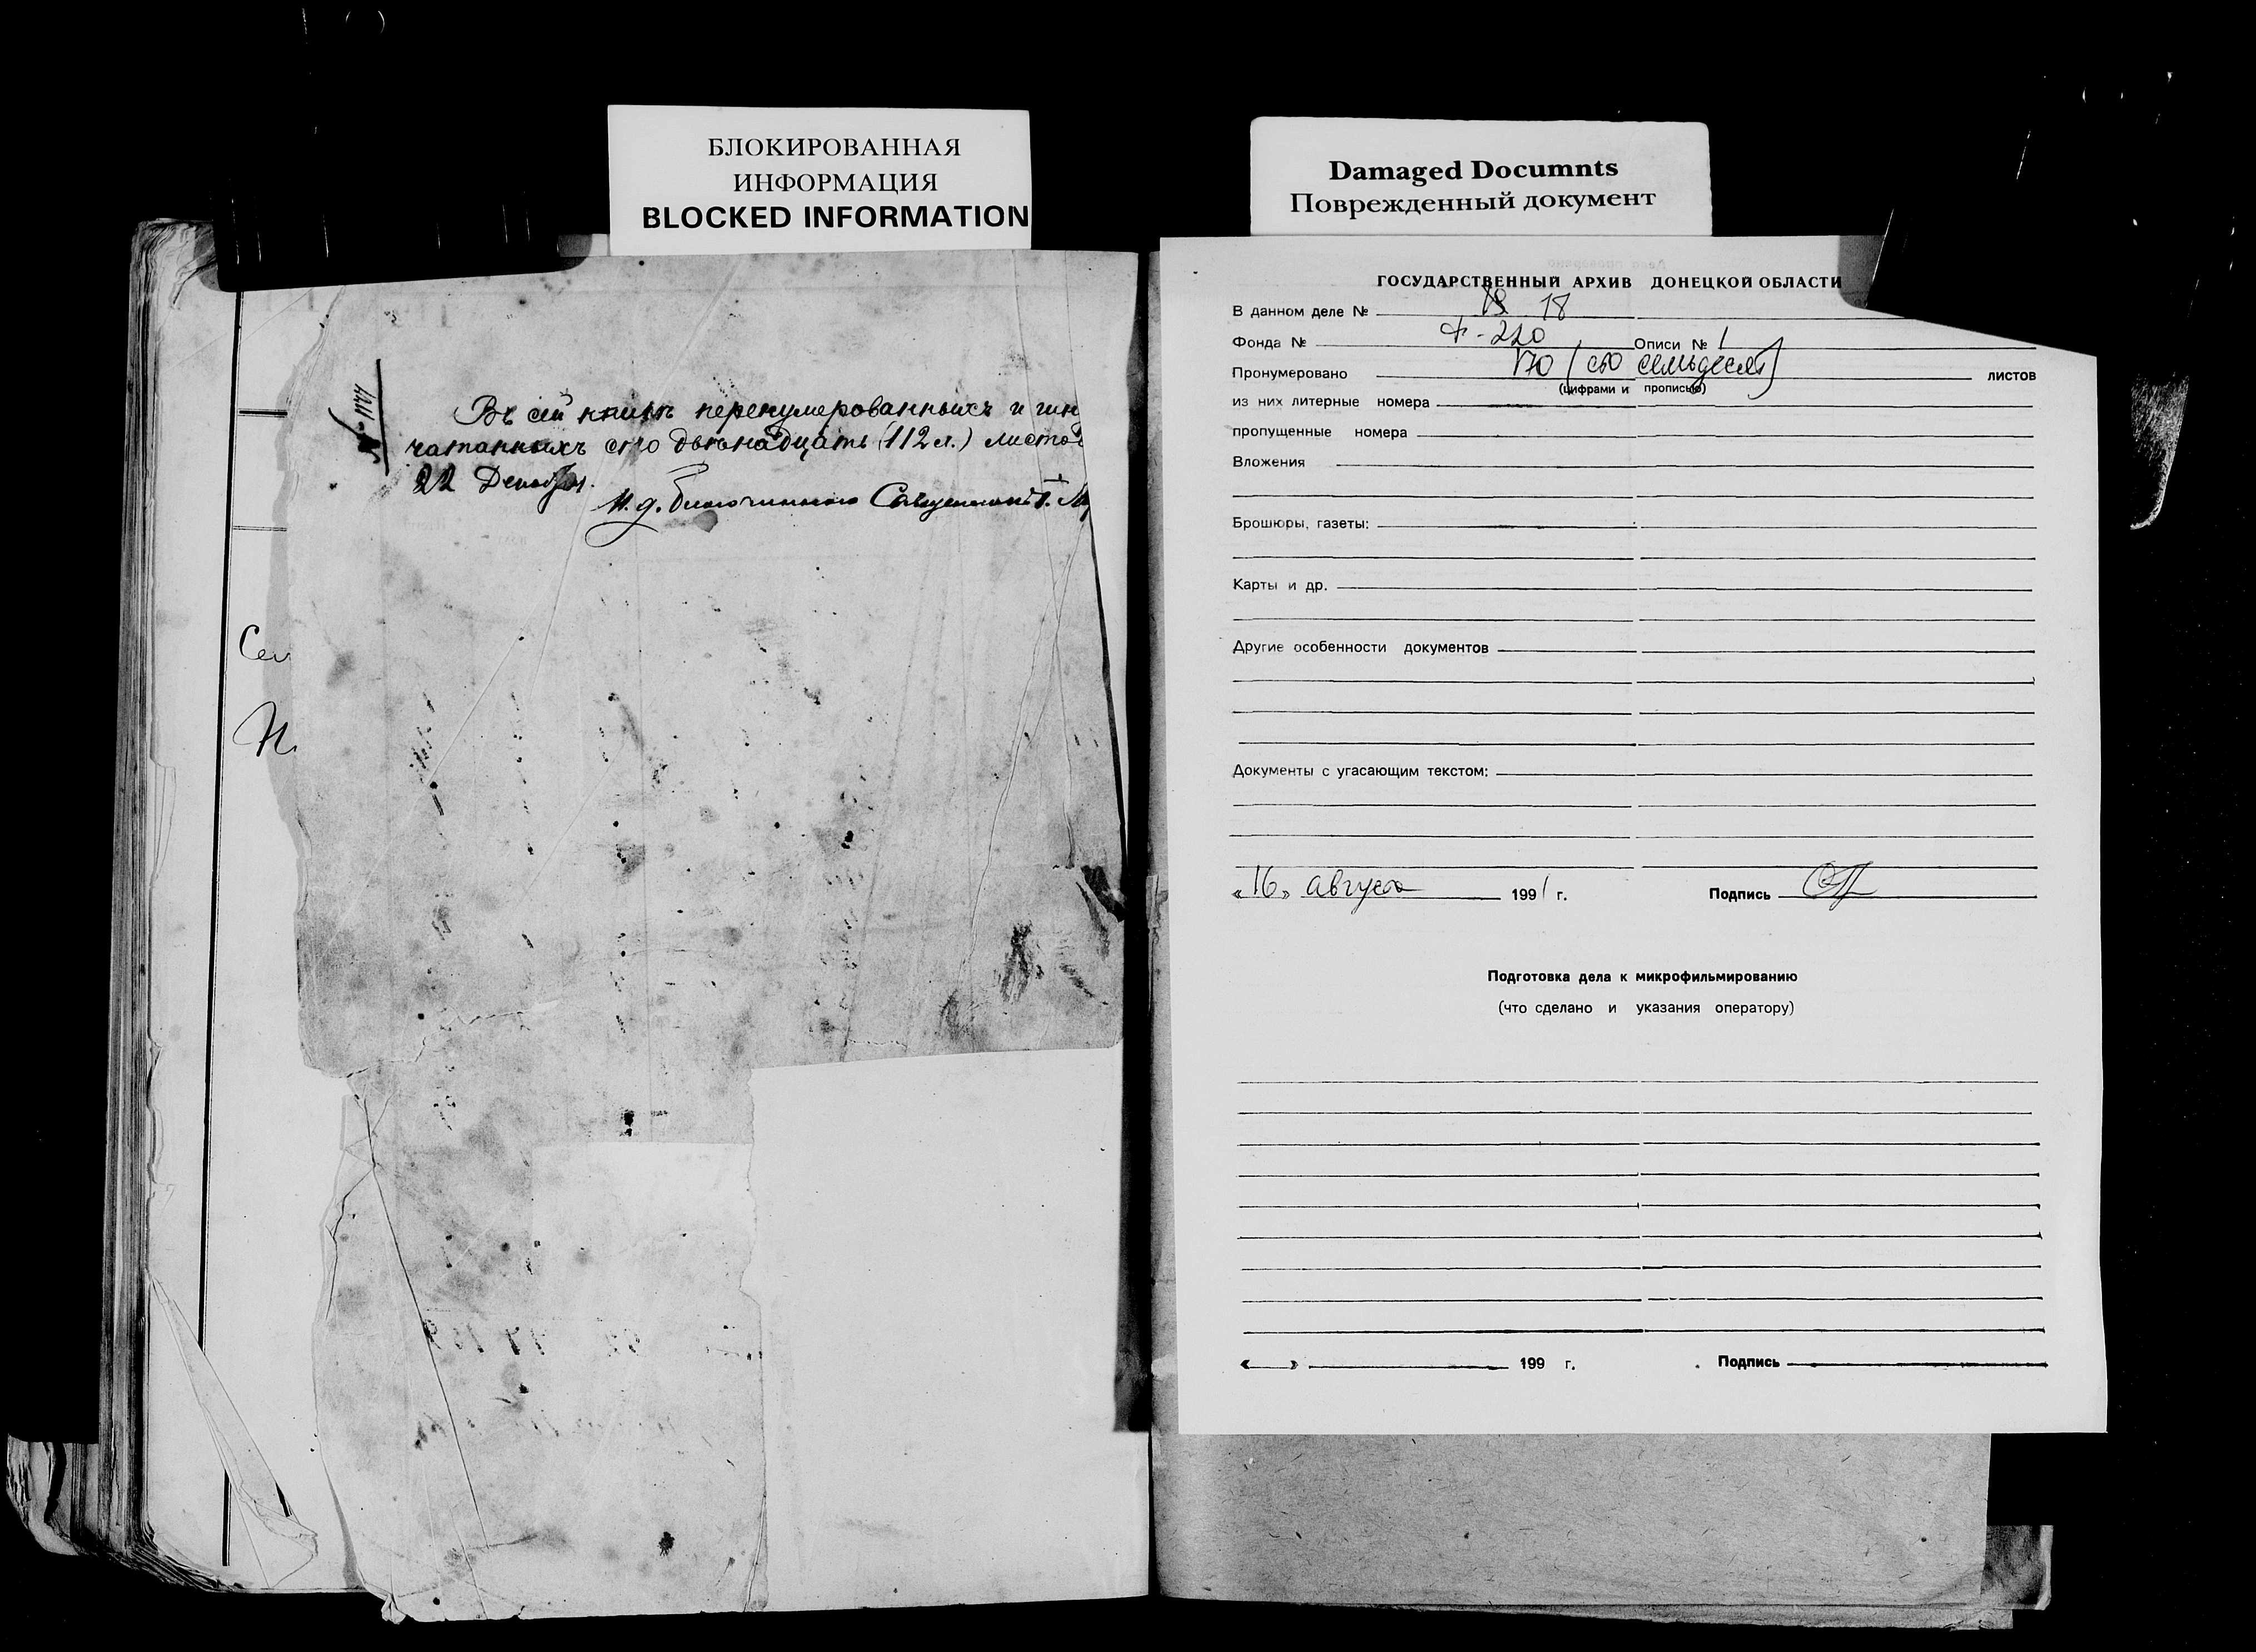 БЛОКИРОВАННАЯ
ИНФОРМАЦИЯ
BLOCKED INFORMATION
Въ сей книгѣ перенумерованныхъ и
чатанныхъ сто двѣнадцать (112 л.) листов
22 Декабря.
И. д. благочиннаго Священникъ
Сел
Damaged Documnts
Поврежденный документ
ГОСУДАРСТВЕННЫЙ АРХИВ ДОНЕЦКОЙ ОБЛАСТИ
В данном деле № 18
Фонда № Ф-220 Описи № 1
Пронумеровано 170 (сто семьдесят) листов
(цифрами и прописью)
из них литерные номера
пропущенные номера
Вложения
Брошюры, газеты:
Карты и др.
Другие особенности документов
Документы с угасающим текстом:
«16» августа 1991 г. Подпись
Подготовка дела к микрофильмированию
(что сделано и указания оператору)
« » 199 г. Подпись